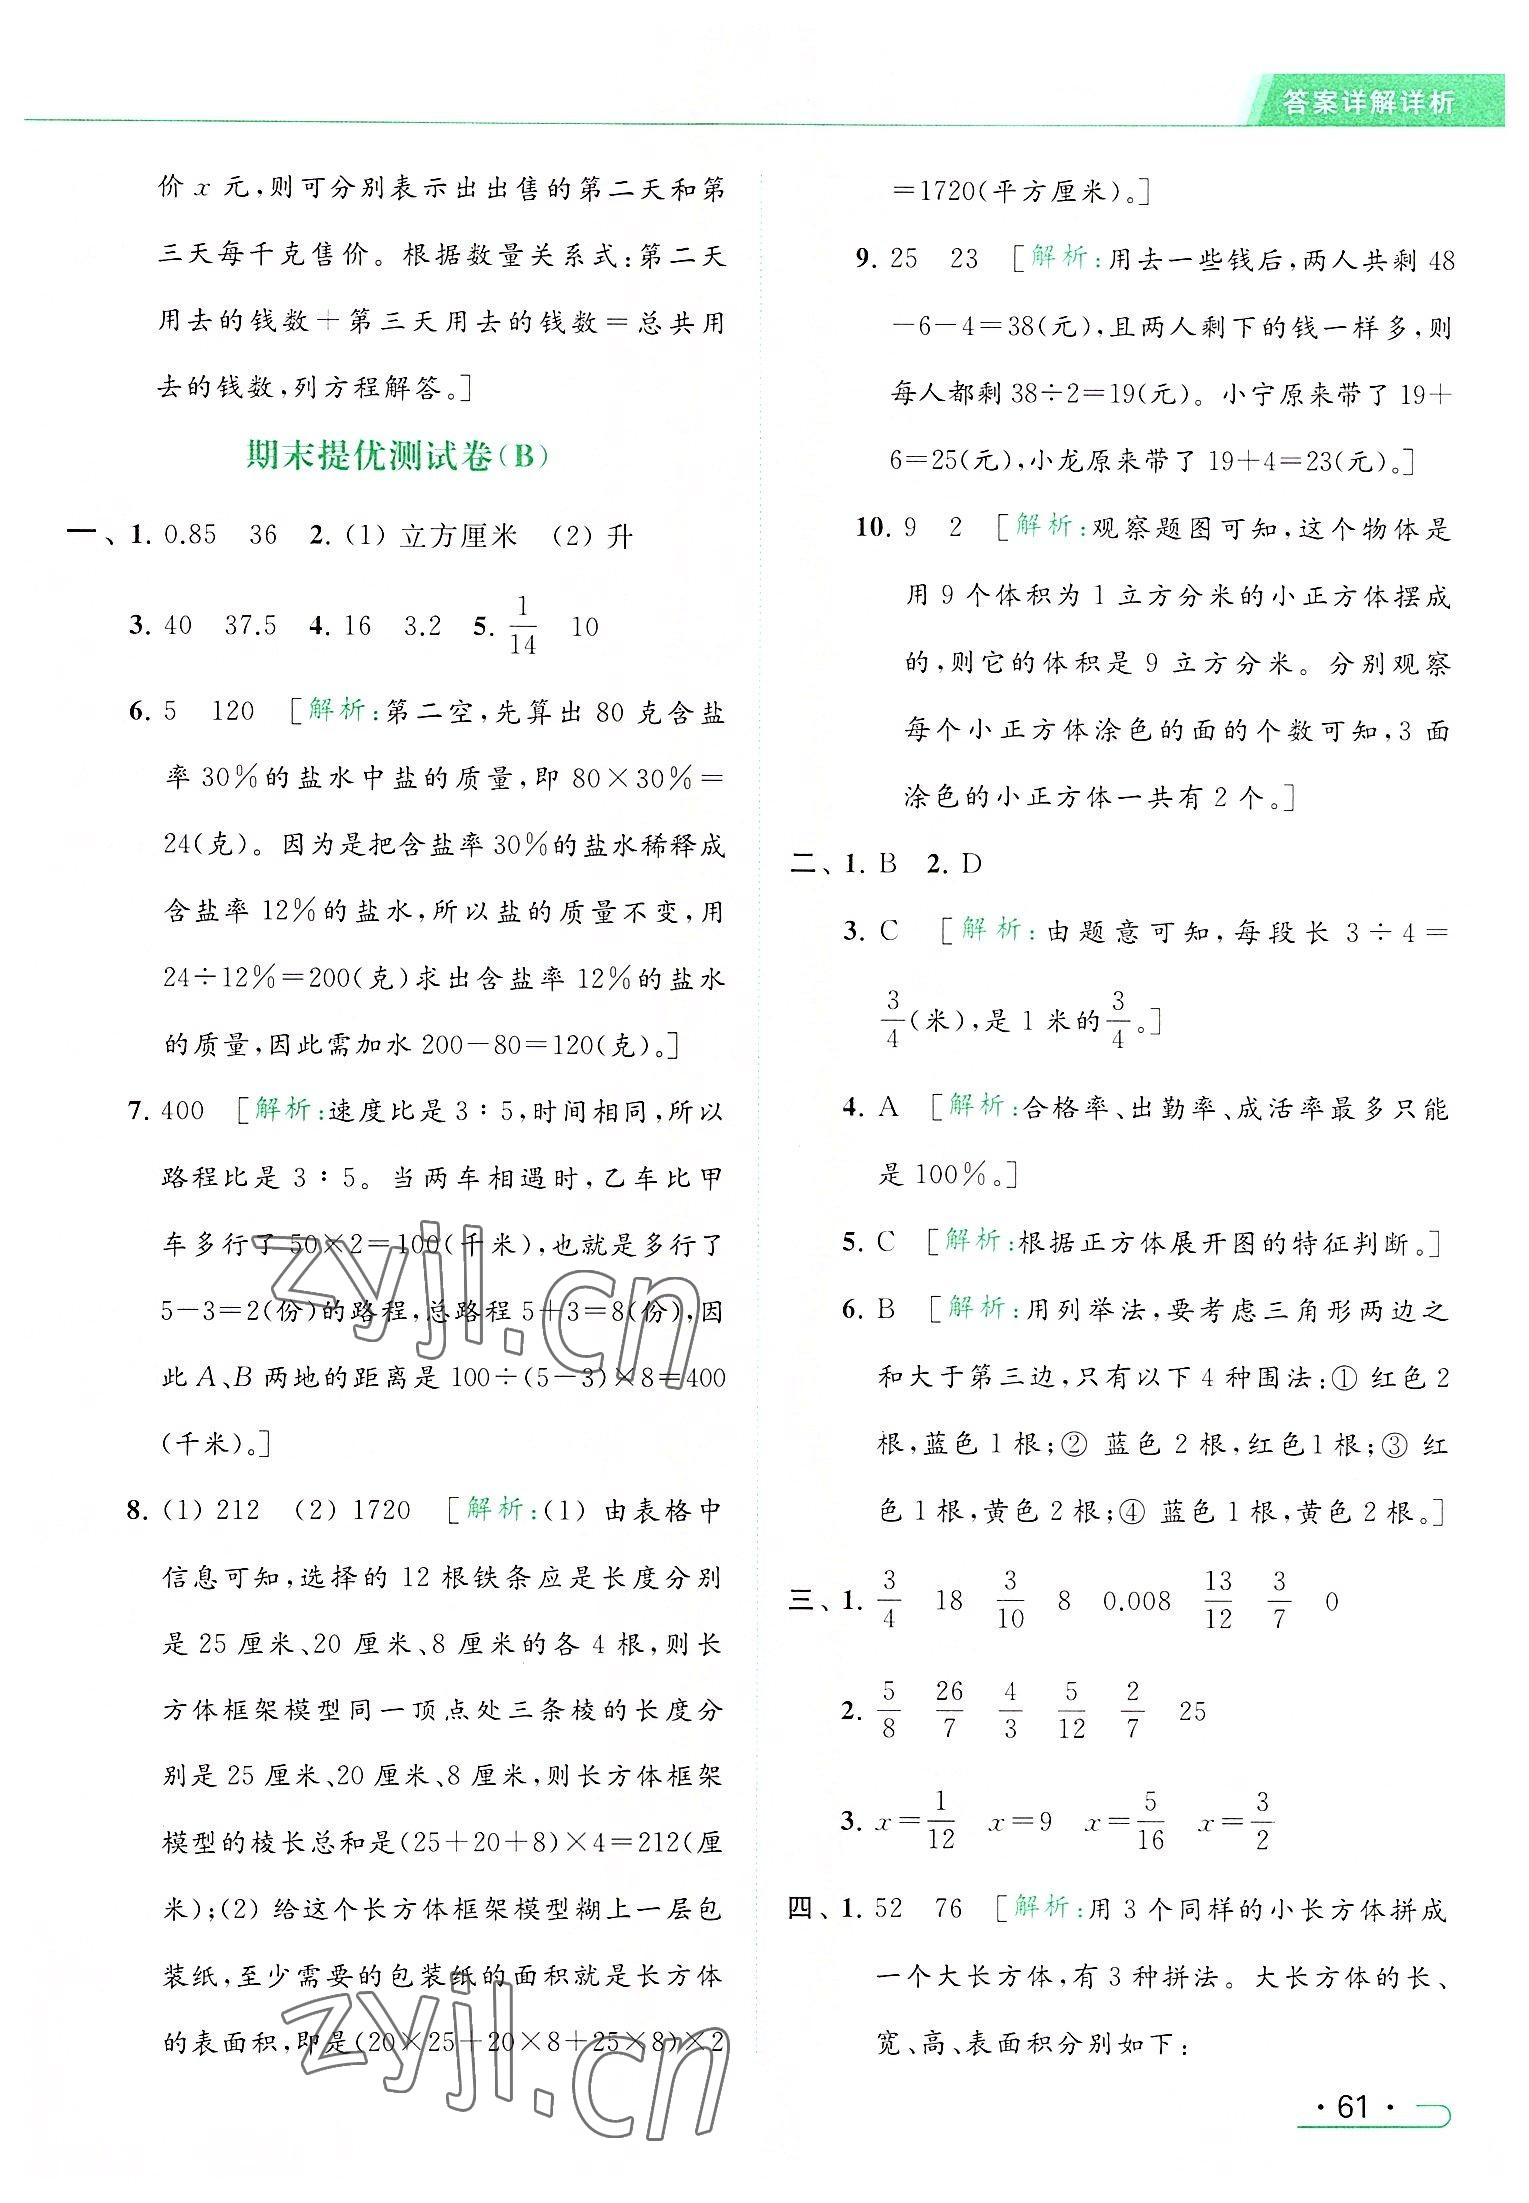 答案详解详析
价 x 元,则可分别表示出出售的第二天和第
三天每千克售价。根据数量关系式:第二天
用去的钱数+第三天用去的钱数=总共用
去的钱数,列方程解答。]
期末提优测试卷(B)
一、1. 0.85 36 2. (1) 立方厘米 (2) 升
3. 40 37.5 4. 16 3.2 5. 1/14 10
6. 5 120 [解析:第二空,先算出 80 克含盐
率 30%的盐水中盐的质量,即 80×30%=
24(克)。因为是把含盐率 30%的盐水稀释成
含盐率 12%的盐水,所以盐的质量不变,用
24÷12%=200(克)求出含盐率 12%的盐水
的质量,因此需加水 200-80=120(克)。]
7. 400 [解析:速度比是 3∶5,时间相同,所以
路程比是 3∶5。当两车相遇时,乙车比甲
车多行了 50×2=100(千米),也就是多行了
5-3=2(份)的路程,总路程 5+3=8(份),因
此 A、B 两地的距离是 100÷(5-3)×8=400
(千米)。]
8. (1) 212 (2) 1720 [解析:(1) 由表格中
信息可知,选择的 12 根铁条应是长度分别
是 25 厘米、20 厘米、8 厘米的各 4 根,则长
方体框架模型同一顶点处三条棱的长度分
别是 25 厘米、20 厘米、8 厘米,则长方体框架
模型的棱长总和是(25+20+8)×4=212(厘
米);(2) 给这个长方体框架模型糊上一层包
装纸,至少需要的包装纸的面积就是长方体
的表面积,即是(20×25+20×8+25×8)×2
=1720(平方厘米)。]
9. 25 23 [解析:用去一些钱后,两人共剩 48
-6-4=38(元),且两人剩下的钱一样多,则
每人都剩 38÷2=19(元)。小宁原来带了 19+
6=25(元),小龙原来带了 19+4=23(元)。]
10. 9 2 [解析:观察题图可知,这个物体是
用 9 个体积为 1 立方分米的小正方体摆成
的,则它的体积是 9 立方分米。分别观察
每个小正方体涂色的面的个数可知,3 面
涂色的小正方体一共有 2 个。]
二、1. B 2. D
3. C [解析:由题意可知,每段长 3÷4=
3/4(米),是 1 米的3/4。]
4. A [解析:合格率、出勤率、成活率最多只能
是 100%。]
5. C [解析:根据正方体展开图的特征判断。]
6. B [解析:用列举法,要考虑三角形两边之
和大于第三边,只有以下 4 种围法:① 红色 2
根,蓝色 1 根;② 蓝色 2 根,红色 1 根;③ 红
色 1 根,黄色 2 根;④ 蓝色 1 根,黄色 2 根。]
三、1. 3/4 18 3/10 8 0.008 13/12 3/7 0
2. 5/8 26/7 4/3 5/12 2/7 25
3. x=1/12 x=9 x=5/16 x=3/2
四、1. 52 76 [解析:用 3 个同样的小长方体拼成
一个大长方体,有 3 种拼法。大长方体的长、
宽、高、表面积分别如下:
zyjl.cn
zyjl.cn
• 61 •